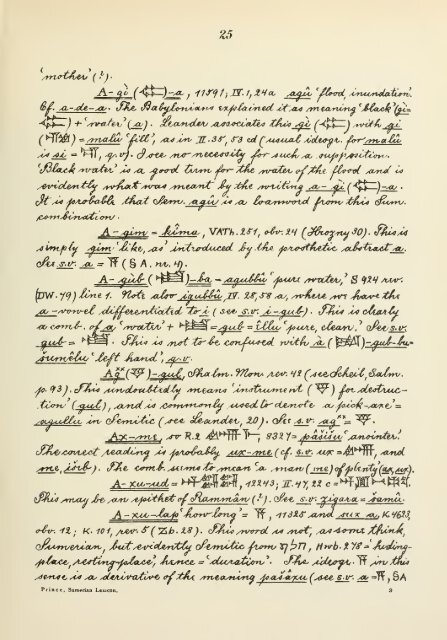 25
'mother' (?).
A-gi (𒈪)-a, 11591; IV. 1, 24a agû 'flood, inundation'.
Cf. a-de-a. The Babylonians explained it as meaning 'black' (gi=
) + 'water' (a). Leander associates this gi () with gi
() = malû 'fill', as in II. 38, 53 cd (usual ideogr. for malû
is si = , q.v.). I see no necessity for such a supposition.
'Black water' is a good term for the water of the flood and is
evidently what was meant by the writing a-gi ()-a.
It is probable that Sem. agû is a loanword from this Sum.
combination.
A-gim = kîma, VATh. 251, obv. 24 (Hrozny 30). This is
simply gim 'like', as introduced by the prosthetic abstract a.
See s.v. a = 𒀀 (§ A. nr. 4).
A-gùb ()-ba = agubbû 'pure water', S 924 rev.
(DW. 79) line 1. Note also igubbû, IV. 28, 58 a, where we have the
a-vowel differentiated to i (see s.v. i-gub). This is clearly
a comb. of a 'water' + = gub = ellu 'pure, clean.' See s.v.
gub = . This is not to be confused with à ()-gub-bu=
šumêlu 'left hand', q.v.
()-gul, Shalm. Mon. rev. 42 (see Scheil, Salm.
p. 93). This undoubtedly means 'instrument () for destruc-
tion' (gul), and is commonly used to denote a pick-axe' =
agullu in Semitic (see Leander, 20). See s.v.
Ax-me, so R.2 , 8327 = pâšišu 'anointer.'
The correct reading is probably ux-me (cf. s.v. ux = , and
me, išib). The comb. seems to mean 'a man (me) of plenty (ax, ux).
A-xu-ud = , 12243; II. 47, 22 c =
This may be an epithet of Rammân (?). See s.v. zigara = šamû.
A-xu-lap 'how long' = 𒀀, 11328 and sux a, K 4623,
obv. 12; K. 101, rev. 5 (Zb. 28). This word is not, as some think,
Sumerian, but evidently Semitic from , Hwb. 278 = 'hiding-
place, resting-place', hence = 'duration'. The ideogr. 𒀀 in this
sense is a derivative of the meaning pašâxu (see s.v. a = 𒀀, § A
Prince, Sumerian Lexicon. 3